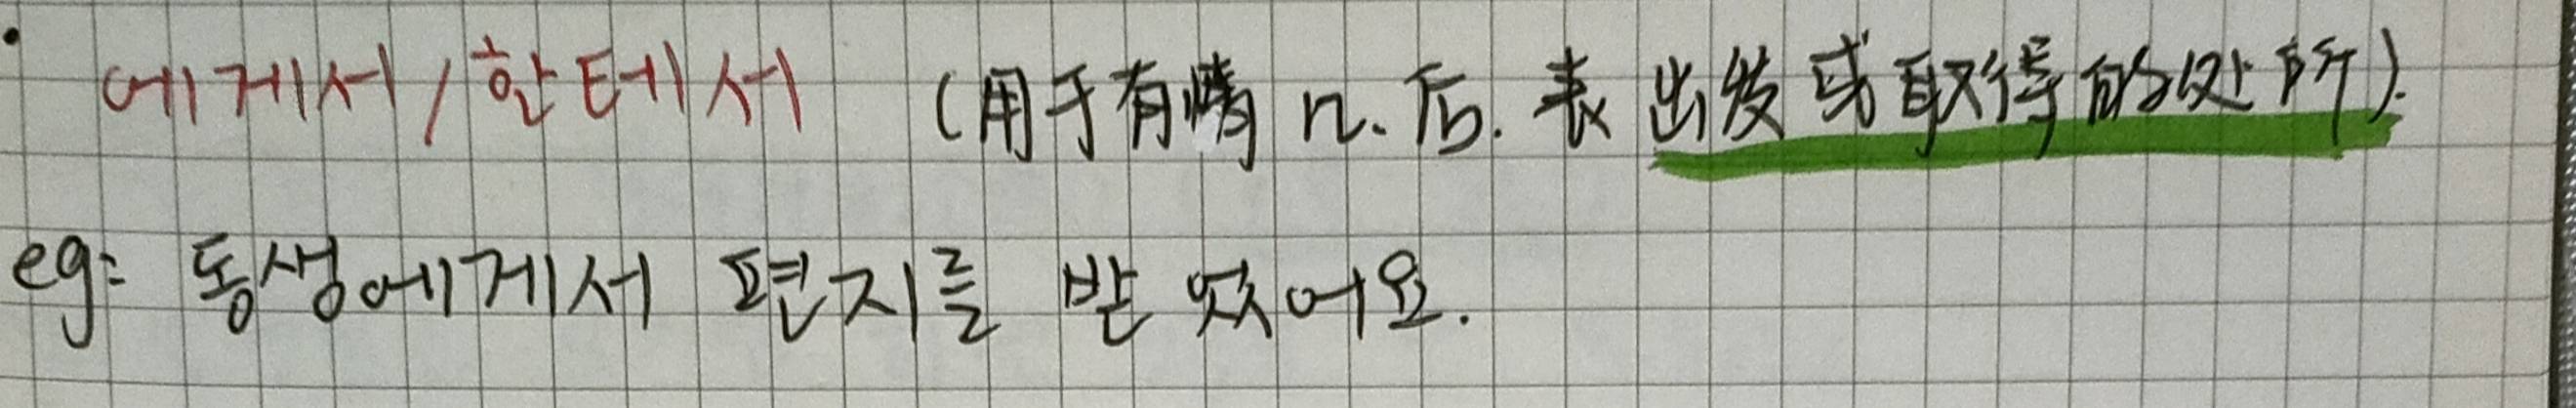 · 에게서/한테서 (用于有情 n. 后. 表出发或取得的处所).
eg: 동생에게서 편지를 받았어요.